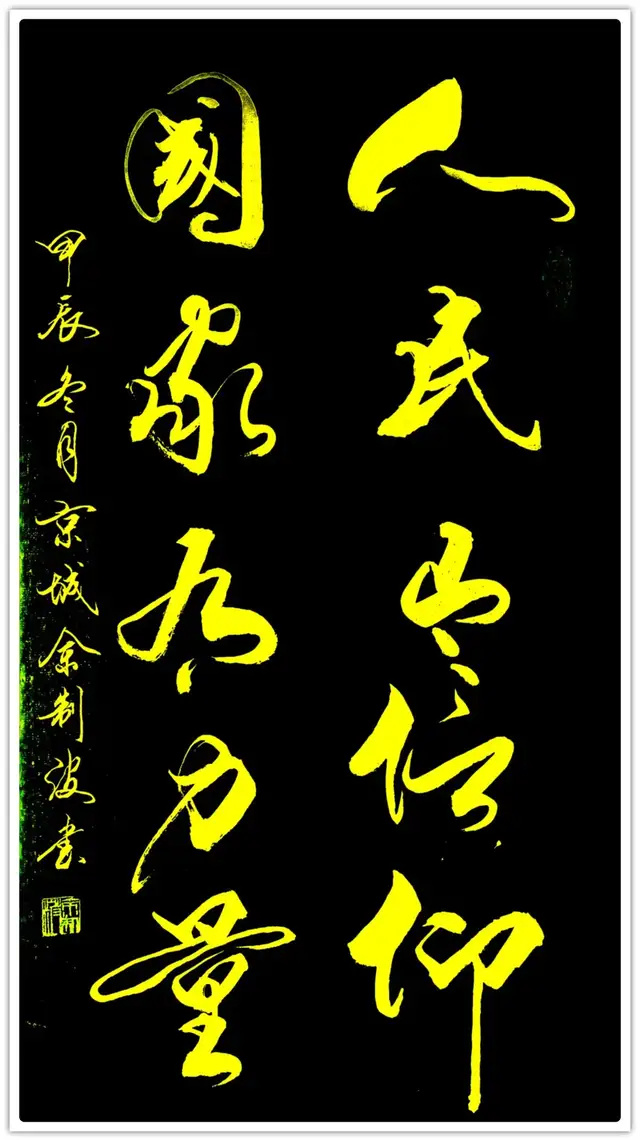 人民有信仰
國家有力量
甲辰冬月京城余制波书